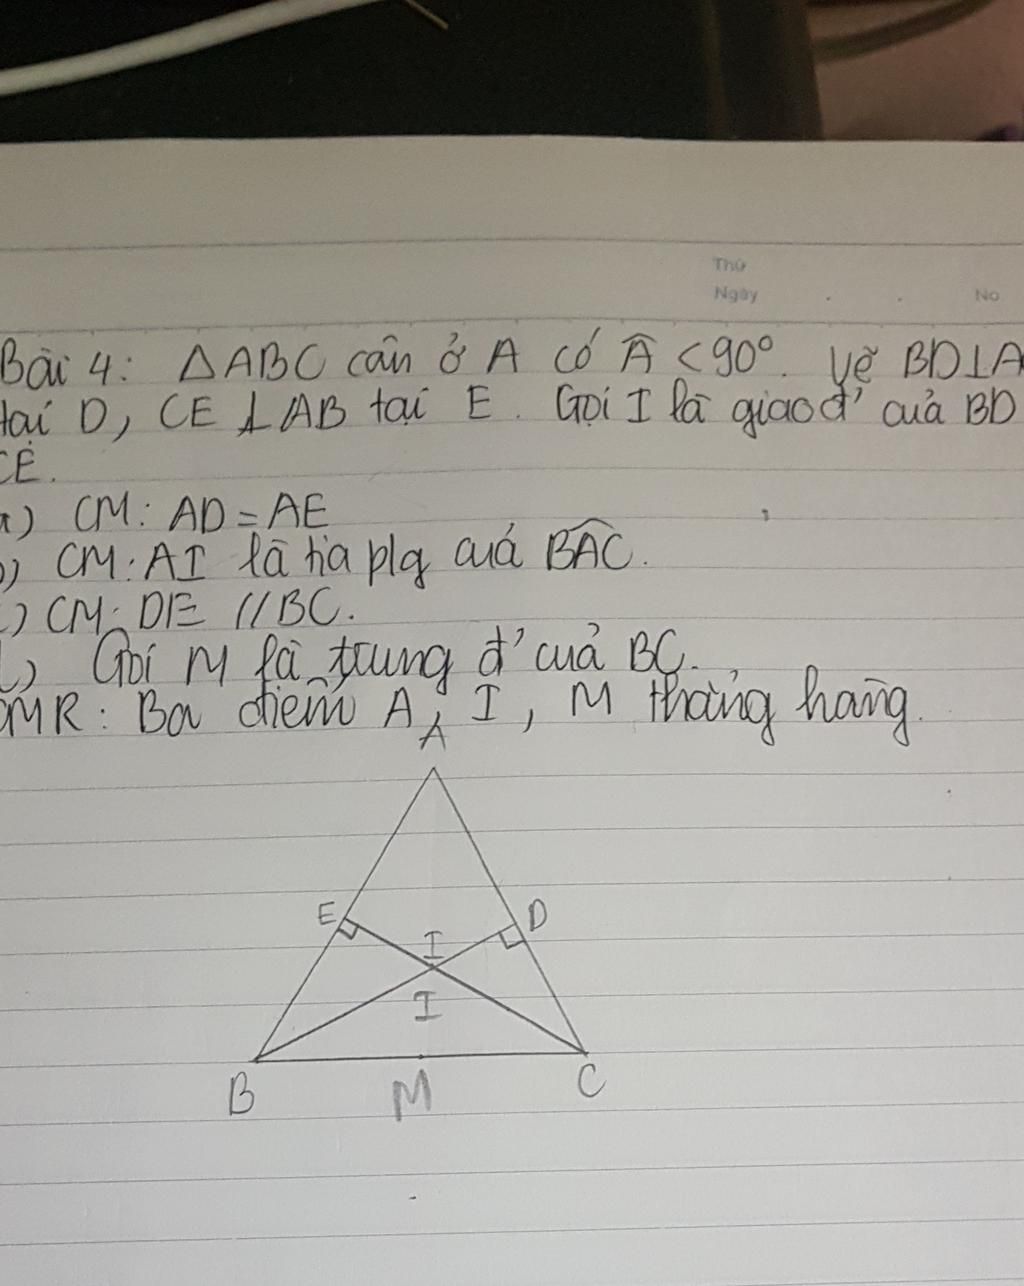 Thứ
Ngày . . No
Bài 4: △ABC cân ở A có Â < 90°. Vẽ BD⊥A
tại D, CE ⊥AB tại E. Gọi I là giao đ' của BD
CE.
a) CM: AD = AE
b) CM: AI là tia plg của BAC.
c) CM: DE // BC.
Gọi M là trung đ' của BC.
CMR: Ba điểm A, I, M thẳng hàng.
A
E D
I
I
B M C